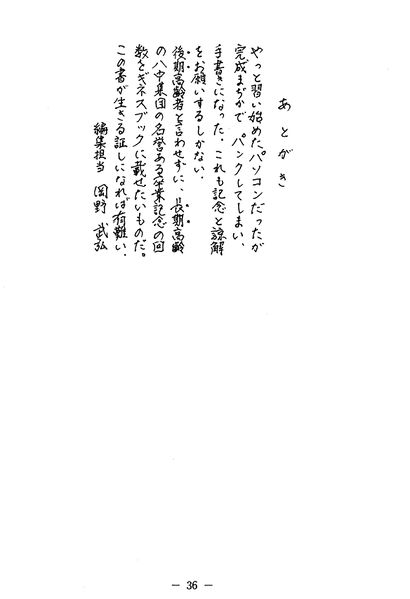 あとがき
やっと習い始めたパソコンだったが
完成まぢかで パンクしてしまい、
手書きになった。これも記念と諒解
をお願いするしかない。
後期高齢者と言わせずに、長期高齢
の八中集団の名誉ある卒業記念の回
数をギネスブックに載せたいものだ。
この書が生きる証しになれば有難い。
編集担当 岡野 武弘
— 36 —